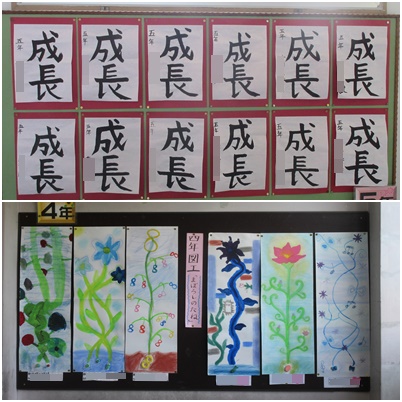 成長
五年
成長
五年
成長
五年
成長
五年
成長
五年
成長
五年
成長
五年
成長
五年
成長
五年
成長
五年
成長
五年
成長
五年
5年
4年
四年図工
まぼろしのたね